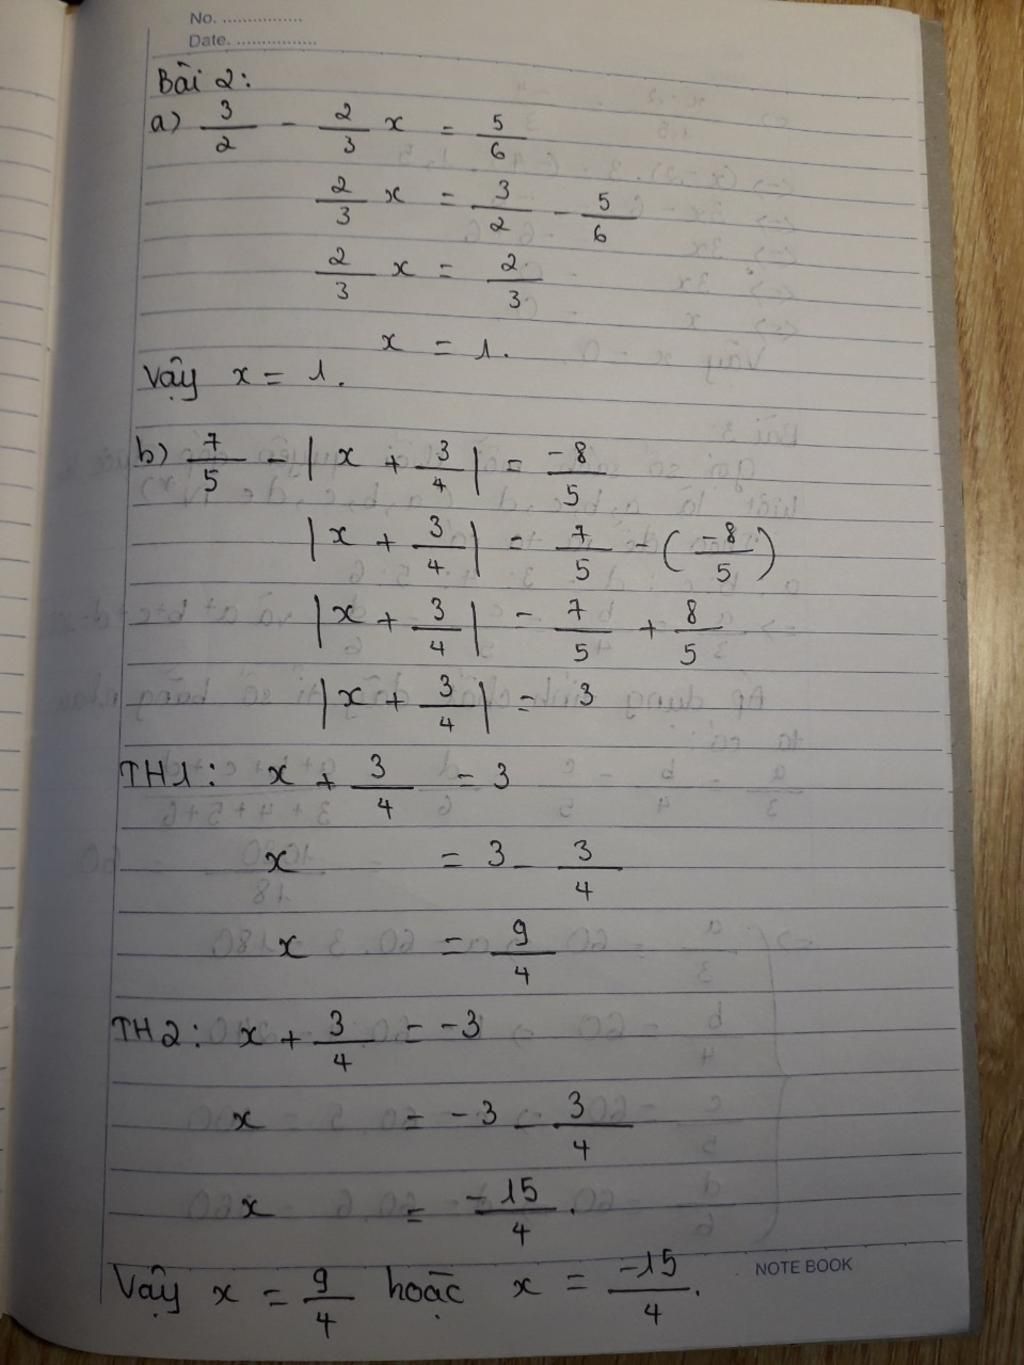 No. ................
Date. ................
Bài 2:
a) 3/2 - 2/3 x = 5/6
2/3 x = 3/2 - 5/6
2/3 x = 2/3
x = 1.
Vậy x = 1.
b) 7/5 - |x + 3/4| = -8/5
|x + 3/4| = 7/5 - (-8/5)
|x + 3/4| = 7/5 + 8/5
|x + 3/4| = 3
TH1: x + 3/4 = 3
x = 3 - 3/4
x = 9/4
TH2: x + 3/4 = -3
x = -3 - 3/4
x = -15/4.
Vậy x = 9/4 hoặc x = -15/4.
NOTE BOOK